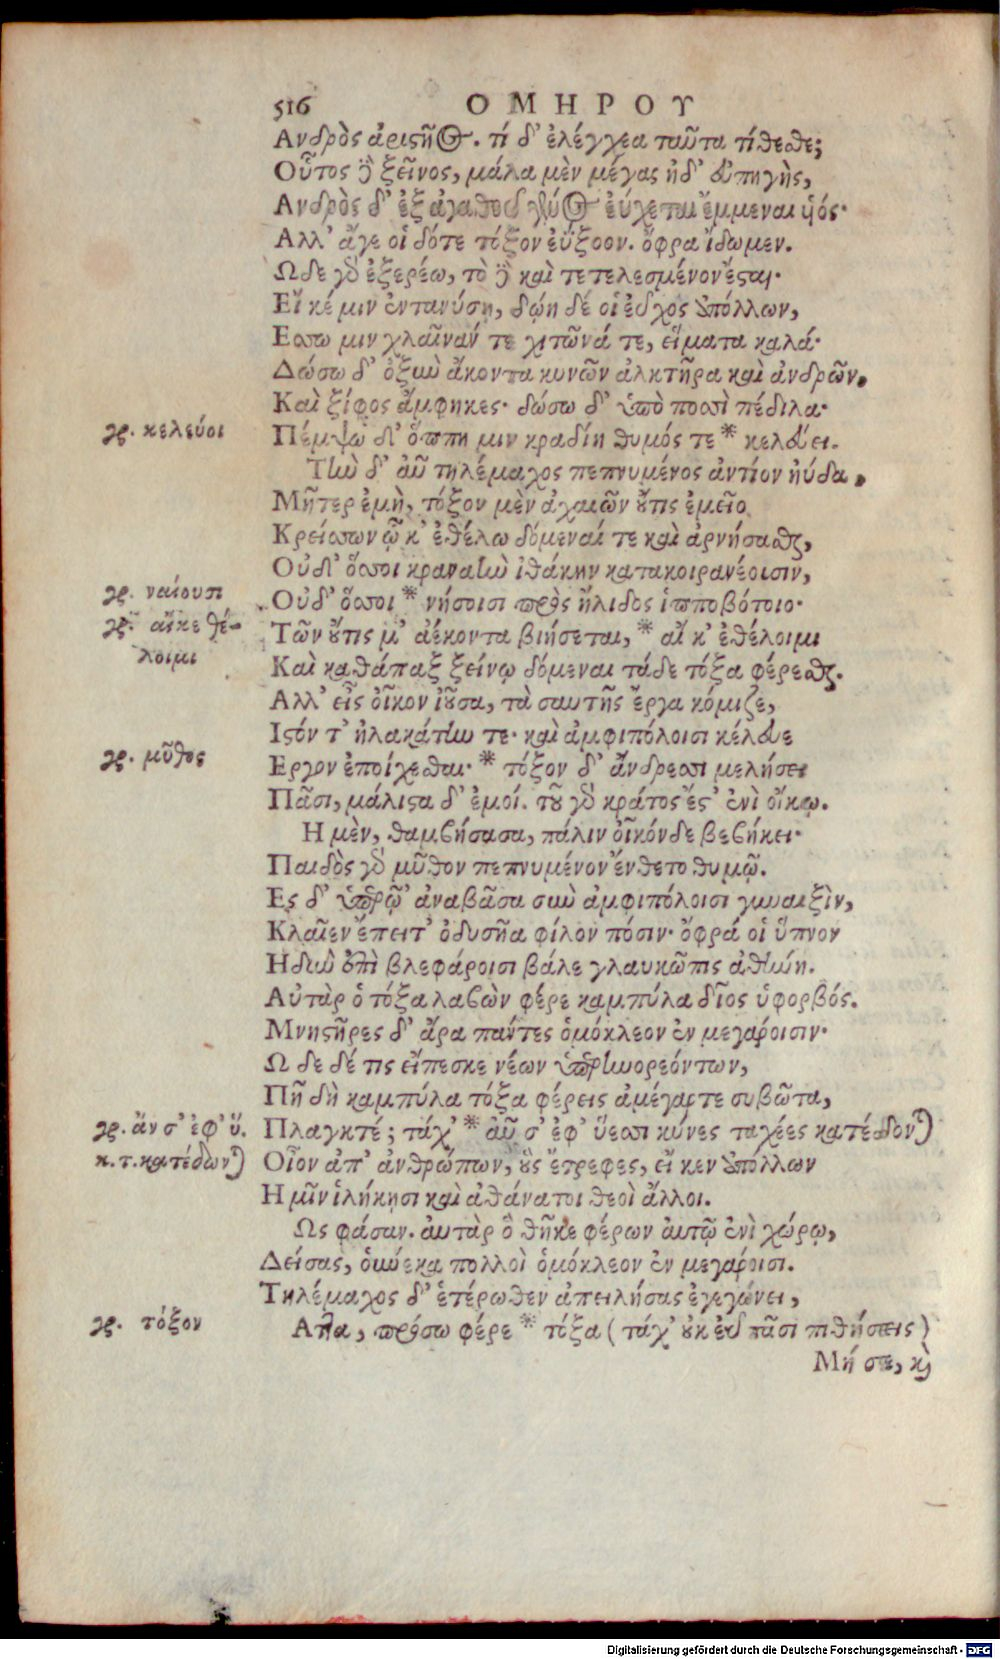 516 ΟΜΗΡΟΥ
Ανδρὸς ἀριστῆος. τί δ' ἐλέγχεα ταῦτα τίθεσθε;
Οὗτος δὲ ξεῖνος, μάλα μὲν μέγας ἠδ' εὐπηγὴς,
Ανδρὸς δ' ἐξ ἀγαθοῦ γένος εὔχεται ἔμμεναι υἱός·
Αλλ' ἄγε οἱ δότε τόξον ἐΰξοον. ὄφρα ἴδωμεν.
Ωδε γὰρ ἐξερέω, τὸ δὲ καὶ τετελεσμένον ἔσται·
Εἴ κέ μιν ἐντανύσῃ, δῴη δέ οἱ εὖχος ἀπόλλων,
Εσσω μιν χλαῖνάν τε χιτῶνά τε, εἵματα καλά·
Δώσω δ' ὀξὺν ἄκοντα κυνῶν ἀλκτῆρα καὶ ἀνδρῶν,
Καὶ ξίφος ἄμφηκες· δώσω δ' ὑπὸ ποσσὶ πέδιλα·
γρ. κελεύοι
Πέμψω δ' ὅππη μιν κραδίη θυμός τε * κελεύει.
Τὴν δ' αὖ τηλέμαχος πεπνυμένος ἀντίον ηὔδα,
Μῆτερ ἐμὴ, τόξον μὲν ἀχαιῶν οὔτις ἐμεῖο
Κρείσσων ᾧ κ' ἐθέλω δόμεναί τε καὶ ἀρνήσασθαι,
Οὐδ' ὅσσοι κραναὴν ἰθάκην κατακοιρανέουσιν,
γρ. ναίουσι
Οὐδ' ὅσσοι * νήσοισι πρὸς ἤλιδος ἱπποβότοιο·
γρ. αἴκε θέ-
λοιμι
Τῶν οὔτις μ' ἀέκοντα βιήσεται, * αἴ κ' ἐθέλοιμι
Καὶ καθάπαξ ξείνῳ δόμεναι τάδε τόξα φέρεσθαι.
Αλλ' εἰς οἶκον ἰοῦσα, τὰ σαυτῆς ἔργα κόμιζε,
Ιστόν τ' ἠλακάτην τε· καὶ ἀμφιπόλοισι κέλευε
γρ. μῦθος
Εργον ἐποίχεσθαι· * τόξον δ' ἄνδρεσσι μελήσει
Πᾶσι, μάλιστα δ' ἐμοί. τοῦ γὰρ κράτος ἔστ' ἐνὶ οἴκῳ.
Η μὲν, θαμβήσασα, πάλιν οἶκόνδε βεβήκει·
Παιδὸς γὰρ μῦθον πεπνυμένον ἔνθετο θυμῷ.
Ες δ' ὑπερῷ' ἀναβᾶσα σὺν ἀμφιπόλοισι γυναιξὶν,
Κλαῖεν ἔπειτ' ὀδυσῆα φίλον πόσιν· ὄφρά οἱ ὕπνον
Ηδὺν ἐπὶ βλεφάροισι βάλε γλαυκῶπις ἀθήνη.
Αὐτὰρ ὁ τόξα λαβὼν φέρε καμπύλα δῖος ὑφορβός.
Μνηστῆρες δ' ἄρα πάντες ὁμόκλεον ἐν μεγάροισιν·
Ω δε δέ τις εἴπεσκε νέων ὑπερηνορεόντων,
Πῆ δὴ καμπύλα τόξα φέρεις ἀμέγαρτε συβῶτα,
γρ. ἄν σ' ἐφ' ὕ.
Πλαγκτέ; τάχ' * αὖ σ' ἐφ' ὕεσσι κύνες ταχέες κατέδονται
κ. τ. κατέδωνται
Οἶον ἀπ' ἀνθρώπων, οὓς ἔτρεφες, εἴ κεν ἀπόλλων
Η μῖν ἱλήκησι καὶ ἀθάνατοι θεοὶ ἄλλοι.
Ως φάσαν. αὐτὰρ ὃ θῆκε φέρων αὐτῷ ἐνὶ χώρῳ,
Δείσας, οὕνεκα πολλοὶ ὁμόκλεον ἐν μεγάροισι.
Τηλέμαχος δ' ἑτέρωθεν ἀπειλήσας ἐγεγώνει,
γρ. τόξον
Αττα, πρόσω φέρε * τόξα (τάχ' οὐκ εὖ πᾶσι πιθήσεις)
Μή σε, καὶ
Digitalisierung gefördert durch die Deutsche Forschungsgemeinschaft - DFG